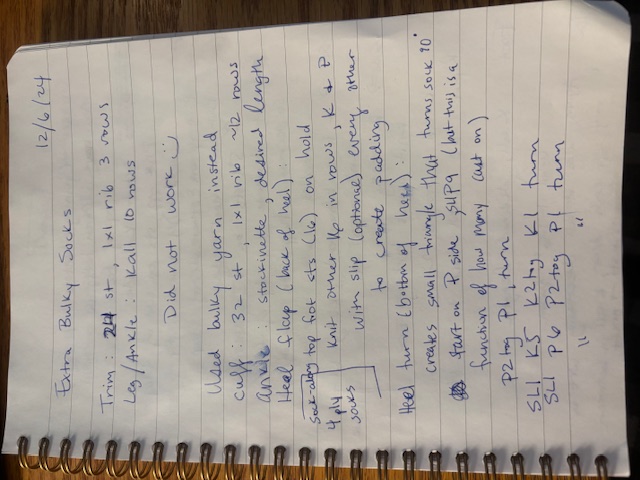 12/6/24
Extra Bulky Socks
Trim: 24 st, 1x1 rib 3 rows
Leg/Ankle: K all 10 rows
Did not work :)
Used bulky yarn instead
Cuff: 32 st, 1x1 rib ~12 rows
Ankle: stockinette, desired length
Heel flap (back of heel):
top foot sts (16) on hold
Knit other 16 in rows, K & P
with slip (optional) every other
to create padding
Sock-along
4 ply
socks
Heel turn (bottom of heel):
creates small triangle that turns sock 90°
start on P side, SL1 P9 (but this is a
function of how many cast on)
P2tog P1, turn
SL1 K5 K2tog K1 turn
SL1 P6 P2tog P1 turn
" "